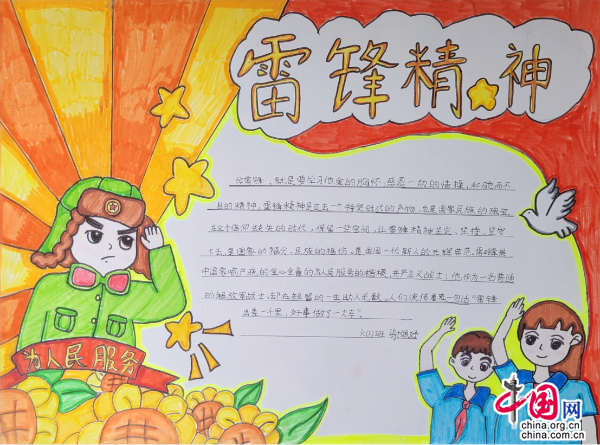 雷锋精神
学雷锋，就是要学习他爱的胸怀，慈悲一切的情操，和驰而不
息的精神。雷锋精神是过去一个特定时代的产物，也是国家民族的瑰宝。
在这个信仰缺失的时代，保留一些空间，让雷锋精神生根、坚持、坚守
下去，是国家的福分，民族的福份，是我国一代新人的光辉典范。雷锋是
中国家喻户晓的全心全意的为人民服务的楷模，共产主义战士；他作为一名普通
的解放军战士，却在短暂的一生助人无数。人们流传着一句话“雷锋
出差一千里，好事做了一大车”
班
为人民服务
中国网
china.org.cn
china.com.cn